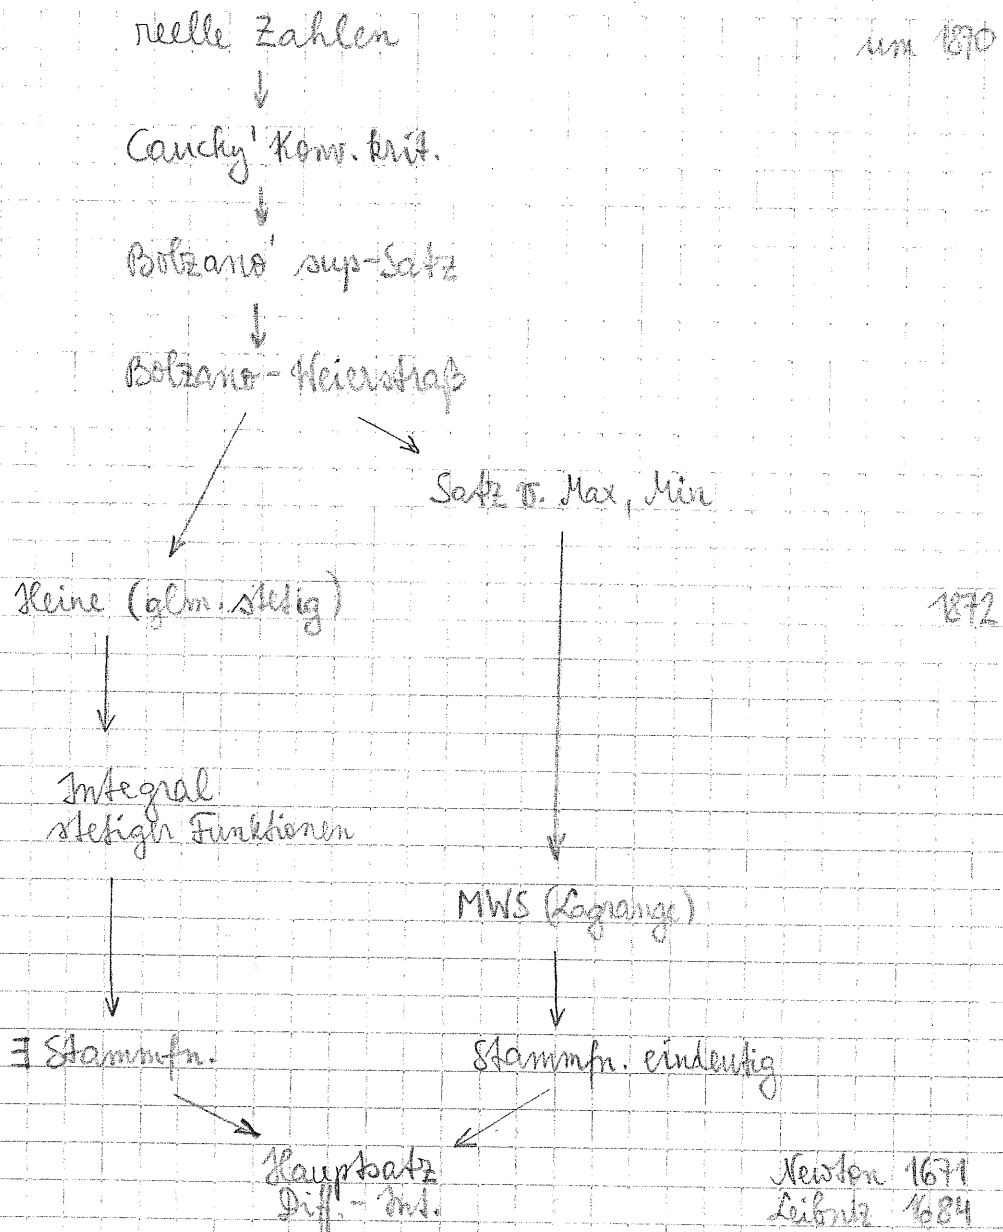 reelle Zahlen um 1870
Cauchy' Konv. krit.
Bolzano' sup-Satz
Bolzano-Weierstraß
Satz v. Max, Min
Heine (glm. stetig) 1872
Integral
stetiger Funktionen
MWS (Lagrange)
∃ Stammfn. Stammfn. eindeutig
Hauptsatz Newton 1671
Diff.-Int. Leibniz 1684